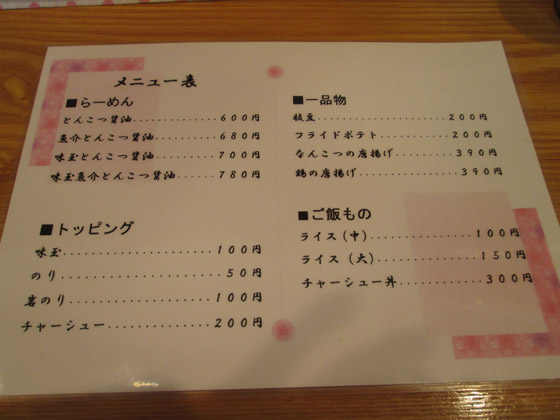 メニュー表
■らーめん
とんこつ醤油..............600円
魚介とんこつ醤油..........680円
味玉とんこつ醤油..........700円
味玉魚介とんこつ醤油......780円
■トッピング
味玉......................100円
のり......................50円
岩のり....................100円
チャーシュー..............200円
■一品物
枝豆......................200円
フライドポテト............200円
なんこつの唐揚げ..........390円
鶏の唐揚げ................390円
■ご飯もの
ライス(中)................100円
ライス(大)................150円
チャーシュー丼............300円